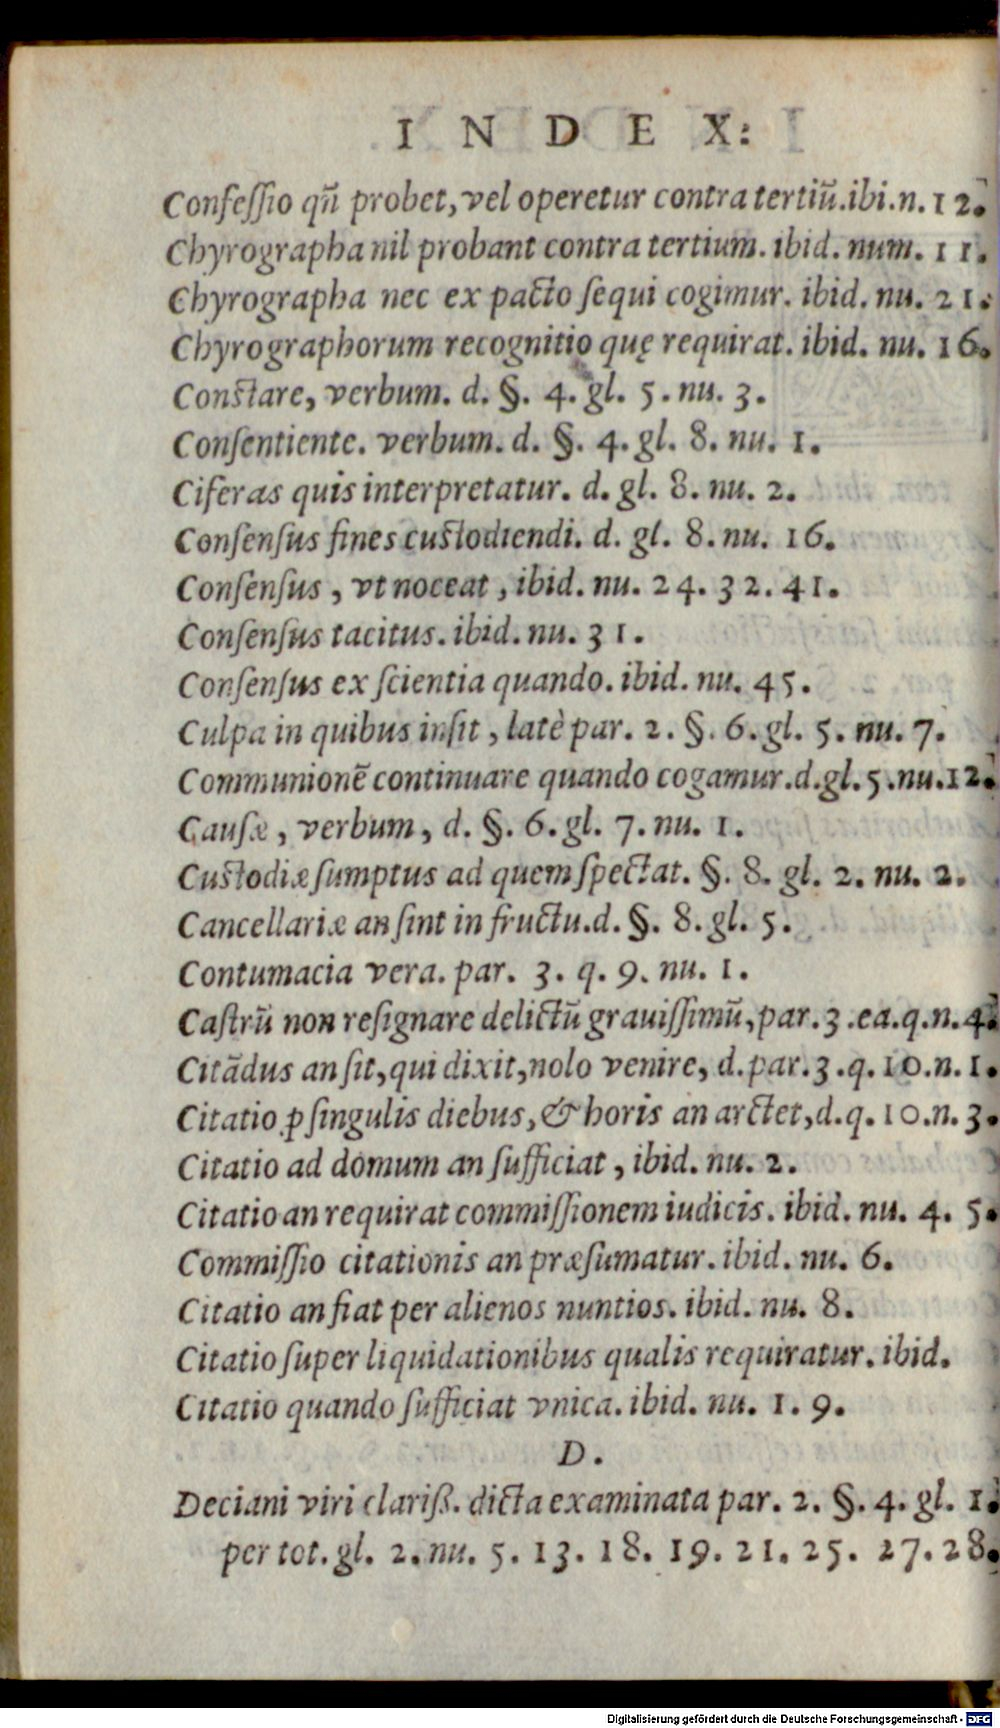 INDEX:
Confeſſio qñ probet, vel operetur contra tertiũ. ibi. n. 12.
Chyrographa nil probant contra tertium. ibid. num. 11.
Chyrographa nec ex pacto ſequi cogimur. ibid. nu. 21.
Chyrographorum recognitio quę requirat. ibid. nu. 16.
Conſtare, verbum. d. §. 4. gl. 5. nu. 3.
Conſentiente. verbum. d. §. 4. gl. 8. nu. 1.
Ciferas quis interpretatur. d. gl. 8. nu. 2.
Conſenſus fines cuſtodiendi. d. gl. 8. nu. 16.
Conſenſus, vt noceat, ibid. nu. 24. 32. 41.
Conſenſus tacitus. ibid. nu. 31.
Conſenſus ex ſcientia quando. ibid. nu. 45.
Culpa in quibus inſit, latè par. 2. §. 6. gl. 5. nu. 7.
Communionẽ continuare quando cogamur. d. gl. 5. nu. 12.
Cauſæ, verbum, d. §. 6. gl. 7. nu. 1.
Cuſtodiæ ſumptus ad quem ſpectat. §. 8. gl. 2. nu. 2.
Cancellariæ an ſint in fructu. d. §. 8. gl. 5.
Contumacia vera. par. 3. q. 9. nu. 1.
Caſtrũ non reſignare delictũ grauiſſimũ, par. 3. ea. q. n. 4.
Citãdus an ſit, qui dixit, nolo venire, d. par. 3. q. 10. n. 1.
Citatio ꝑ ſingulis diebus, & horis an arctet, d. q. 10. n. 3.
Citatio ad domum an ſufficiat, ibid. nu. 2.
Citatio an requirat commiſſionem iudicis. ibid. nu. 4. 5.
Commiſſio citationis an præſumatur. ibid. nu. 6.
Citatio an fiat per alienos nuntios. ibid. nu. 8.
Citatio ſuper liquidationibus qualis requiratur. ibid.
Citatio quando ſufficiat vnica. ibid. nu. 1. 9.
D.
Deciani viri clariß. dicta examinata par. 2. §. 4. gl. 1.
per tot. gl. 2. nu. 5. 13. 18. 19. 21. 25. 27. 28.
Digitalisierung gefördert durch die Deutsche Forschungsgemeinschaft - DFG